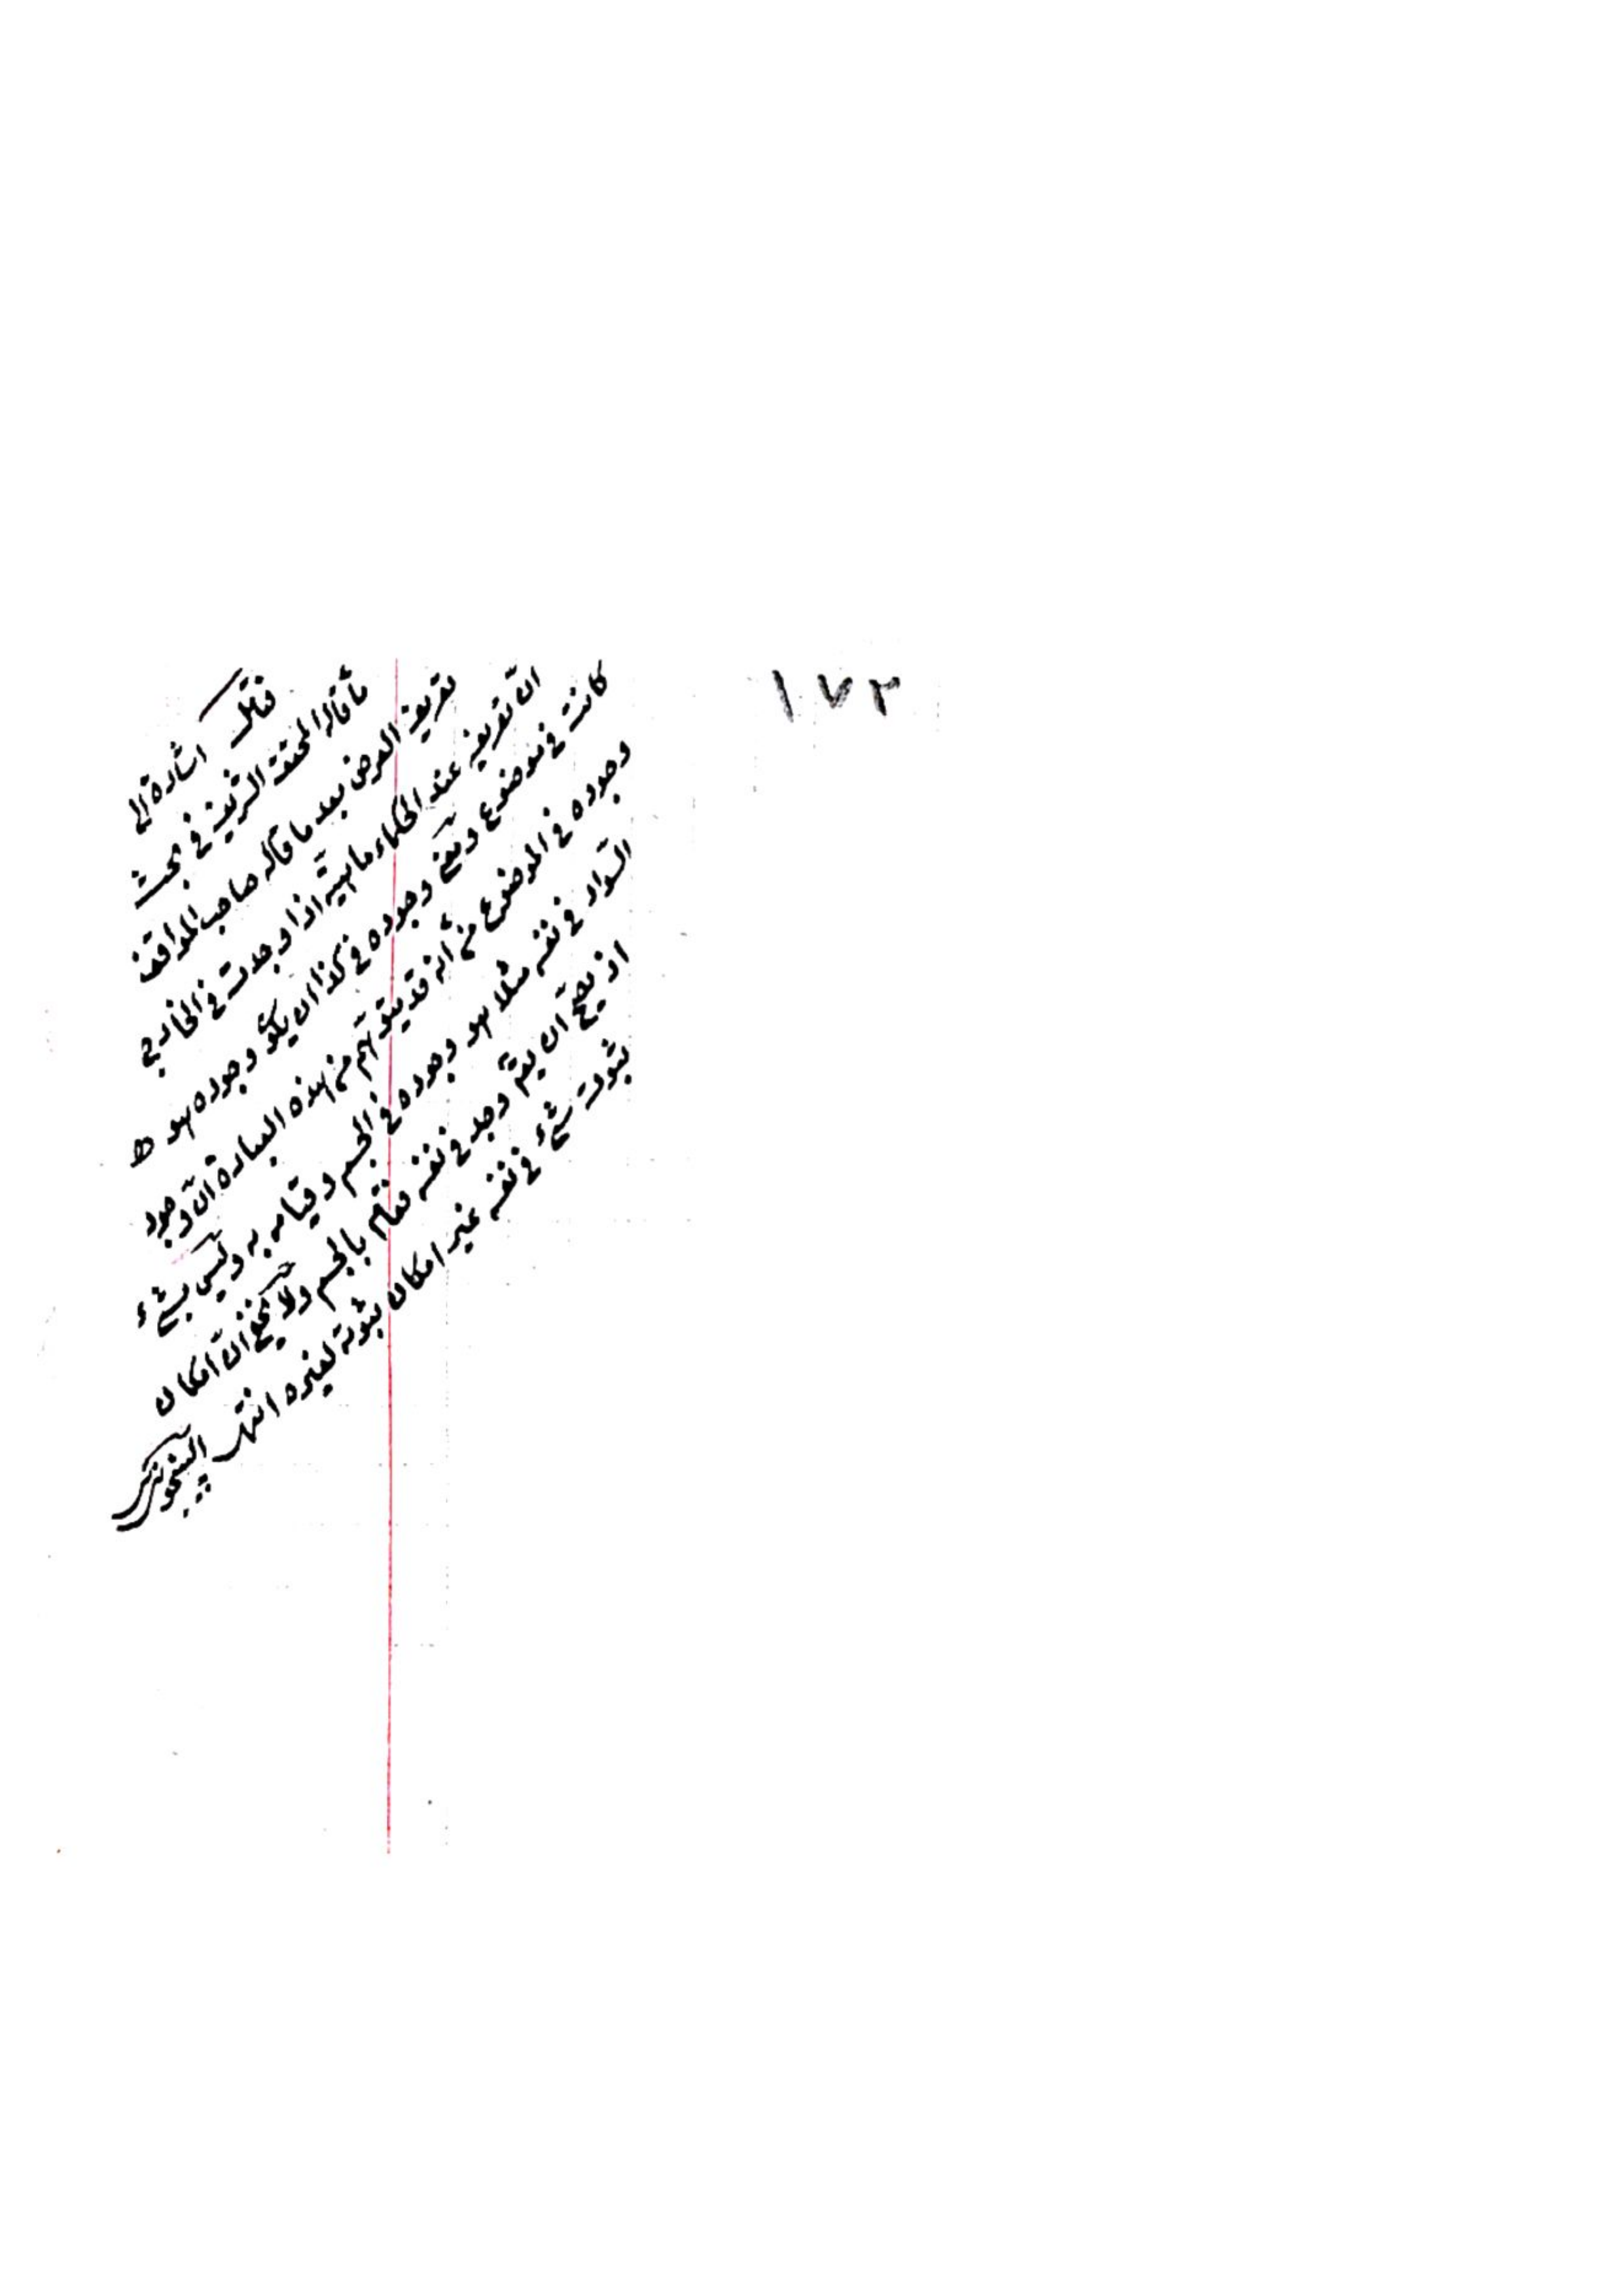 ١٧٢
فتأمل اشارة الى
ما قاله المحقق الشريف في بحث
تعريف العرض بعد ما قاله صاحب المواقف
ان تعريفه عند الحكماء ماهية اذا وجدت في الخارج
كانت في موضوع ومعنى وجوده في كذا ان يكون وجوده هو
وجوده في الموضوع من انه قد يتوهم من هذه العبارة ان وجود
السواد في نفسه مثلا هو وجوده في الجسم وقيامه به وليس بشيء
اذ يصح ان يقال وجد في نفسه فقام بالجسم ولا يخفى ان امكان
ثبوت شيء في نفسه غير امكان ثبوته لغيره انتهى